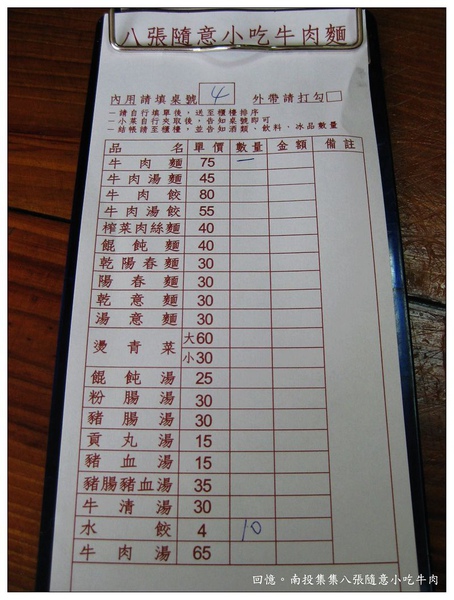 八張隨意小吃牛肉麵
內用請填桌號 4 外帶請打勾□
－請自行填單後，送至櫃檯排序
－小菜自行夾取後，告知桌號即可
－結帳請至櫃檯，並告知酒類、飲料、冰品數量
品名 單價 數量 金額 備註
牛肉麵 75 一
牛肉湯麵 45
牛肉餃 80
牛肉湯餃 55
榨菜肉絲麵 40
餛飩麵 40
乾陽春麵 30
陽春麵 30
乾意麵 30
湯意麵 30
燙青菜 大60
小30
餛飩湯 25
粉腸湯 30
豬腸湯 30
貢丸湯 15
豬血湯 15
豬腸豬血湯 35
牛清湯 30
水餃 4 10
牛肉湯 65
回憶。南投集集八張隨意小吃牛肉